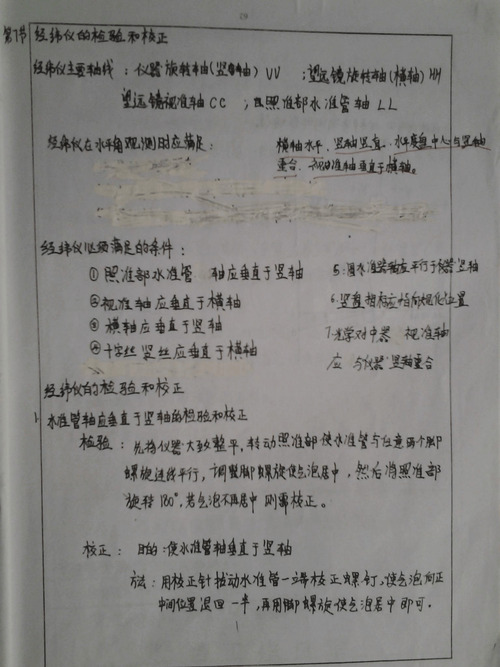 第7节 经纬仪的检验和校正
经纬仪主要轴线：仪器旋转轴(竖轴) VV ；望远镜旋转轴(横轴) HH
望远镜视准轴 CC ；照准部水准管轴 LL
经纬仪在水平角观测时应满足：
横轴水平、竖轴竖直、水平度盘中心与竖轴
重合、视准轴垂直于横轴。
经纬仪必须满足的条件：
①照准部水准管 轴应垂直于竖轴
②视准轴应垂直于横轴
③横轴应垂直于竖轴
④十字丝竖丝应垂直于横轴
5.圆水准器轴应平行于仪器竖轴
6.竖直指标应
7.光学对中器 视准轴
应 与仪器竖轴重合
经纬仪的检验和校正
1. 水准管轴应垂直于竖轴的检验和校正
检验：先将仪器大致整平，转动照准部使水准管与任意两个脚
螺旋连线平行，调整脚螺旋使气泡居中，然后将照准部
旋转180°，若气泡不再居中 则需校正。
校正：目的：使水准管轴垂直于竖轴
方法：用校正针拨动水准管一端校正螺钉，使气泡向正
中间位置退回一半，再用脚螺旋使气泡居中即可。